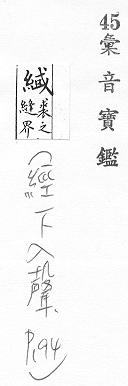 45彙音寶鑑
緎裘之縫界
(經下入聲, P.94)